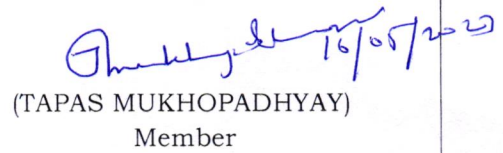 16/05/2023
(TAPAS MUKHOPADHYAY)
Member